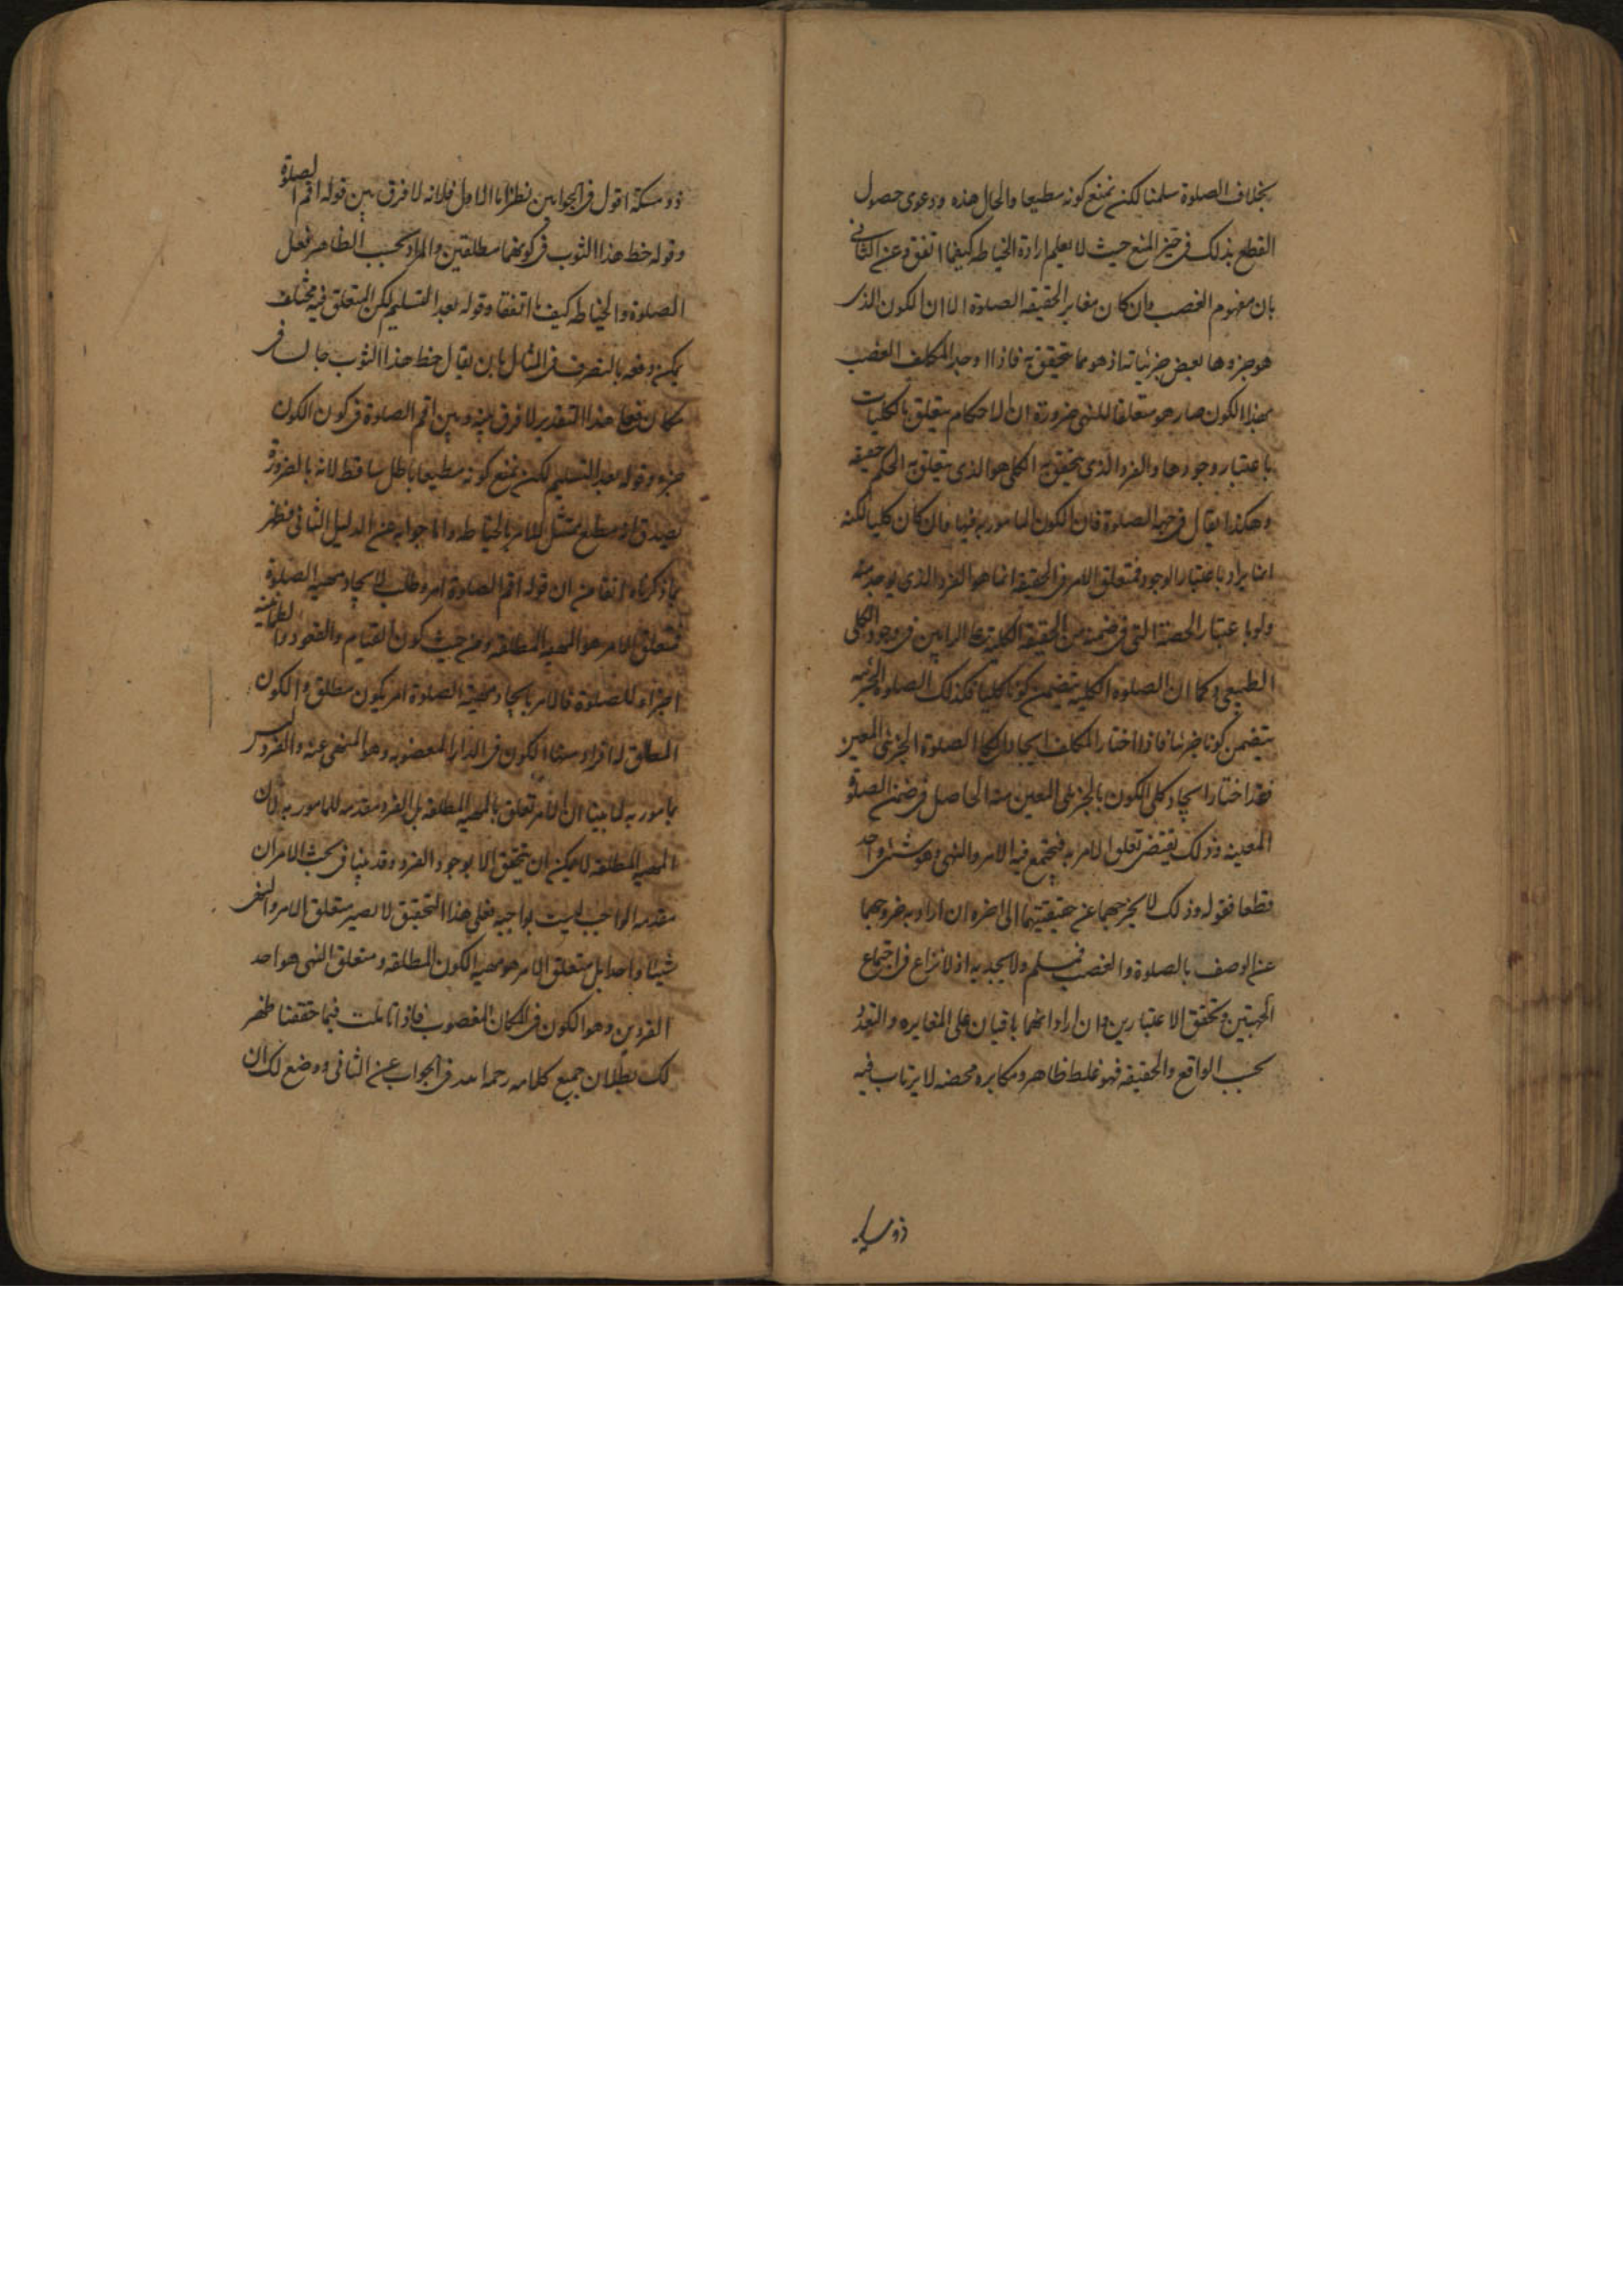 بخلاف الصلوة سلمنا لكن نمنع كونه مطيعا والحال هذه ودعوى حصول
القطع بذلك فى حيز المنع حيث لا يعلم ارادة الخياطه كيفما اتفق وعن الثانى
بان مفهوم الغصب وان كان مغاير الحقيقه الصلوة الا ان الكون الذى
هو جزوها بعض جزئياته اذ هو مما يتحقق به فاذا اوجد المكلف الغصب
بهذا الكون صار هو متعلقا للنهى ضرورة ان الاحكام يتعلق بالكليات
باعتبار وجودها والفرد الذى يتحقق به الكلى هو الذى يتعلق به الحكم حقيقه
وهكذا يقال فى جهة الصلوة فان الكون المامور به فيها وان كان كليا لكنه
انما يراد باعتبار الوجود فمتعلق الامر فى الحقيقة انما هو الفرد الذى يوجد منه
ولو باعتبار الحصة التى فى ضمنه من الحقيقة الكلية على الرايين فى وجود الكلى
الطبيعى وكما ان الصلوة الكلية يتضمن كونا كليا فكذلك الصلوة الجزئيه
يتضمن كونا جزئيا فاذا اختار المكلف ايجاد كلى الصلوة بالجزئى المعين
فقد اختار ايجاد كلى الكون بالجزئى المعين منه الحاصل فى ضمن الصلوة
المعينه وذلك يقتضى تعلق الامر به فيجتمع فيه الامر والنهى وهو شئ واحد
قطعا فقوله وذلك لا يخرجهما عن حقيقتيهما الى اخره ان اراد به خروجهما
عن الوصف بالصلوة والغصب فمسلم ولا يجديه اذ لا نزاع فى اجتماع
الجهتين وتحقق الاعتبارين وان اراد انهما باقيان على المغايره والتعدد
بحسب الواقع والحقيقه فهو غلط ظاهر ومكابره محضه لا يرتاب فيه
ذو مسكة اقول فى الجوابين نظر اما الاول فلانه لا فرق بين قوله اقم الصلوة
وقوله خط هذا الثوب فى كونهما مطلقتين والمراد بحسب الظاهر فعل
الصلوة والخياطه كيف ما اتفقا وقوله بعد التسليم لكن المتعلق فيه مختلف
يمكن دفعه بالتصرف فى المثال بان يقال خط هذا الثوب جالسا فى
مكان فعلى هذا التقدير لا فرق بينه وبين اقم الصلوة فى كون الكون
جزءه وقوله بعد التسليم لكن نمنع كونه مطيعا باطل ساقط لانه بالضرورة
يصدق انه مطيع ممتثل للامر بالخياطه واما جوابه عن الدليل الثانى فنظر
بما ذكرناه انفا من ان قوله اقم الصلوة امر وطلب لايجاد مهيه الصلوة
فمتعلق الامر هو المهيه المطلقه ومن حيث كون القيام والقعود والطمانينه
اجزاء للصلوة فالامر بايجاد مهية الصلوة امر بكون مطلق والكون
المطلق له افراد منها الكون فى الدار المغصوبه وهو المنهى عنه والفرد ليس
مامور به لما بينا ان الامر تعلق بالمهيه المطلقه بل الفرد مقدمه للمامور به لان
المهيه المطلقه لا يمكن ان يتحقق الا بوجود الفرد وقد بينا فى بحث الامر ان
مقدمه الواجب ليست بواجبه فعلى هذا التحقيق لا يصير متعلق الامر والنهى
شيئا واحدا بل متعلق الامر هو مهيه الكون المطلقه ومتعلق النهى هو احد
الفردين وهو الكون فى المكان المغصوب فاذا تاملت فيما حققنا ظهر
لك بطلان جميع كلامه رحمه الله فى الجواب عن الثانى ووضع لك ان